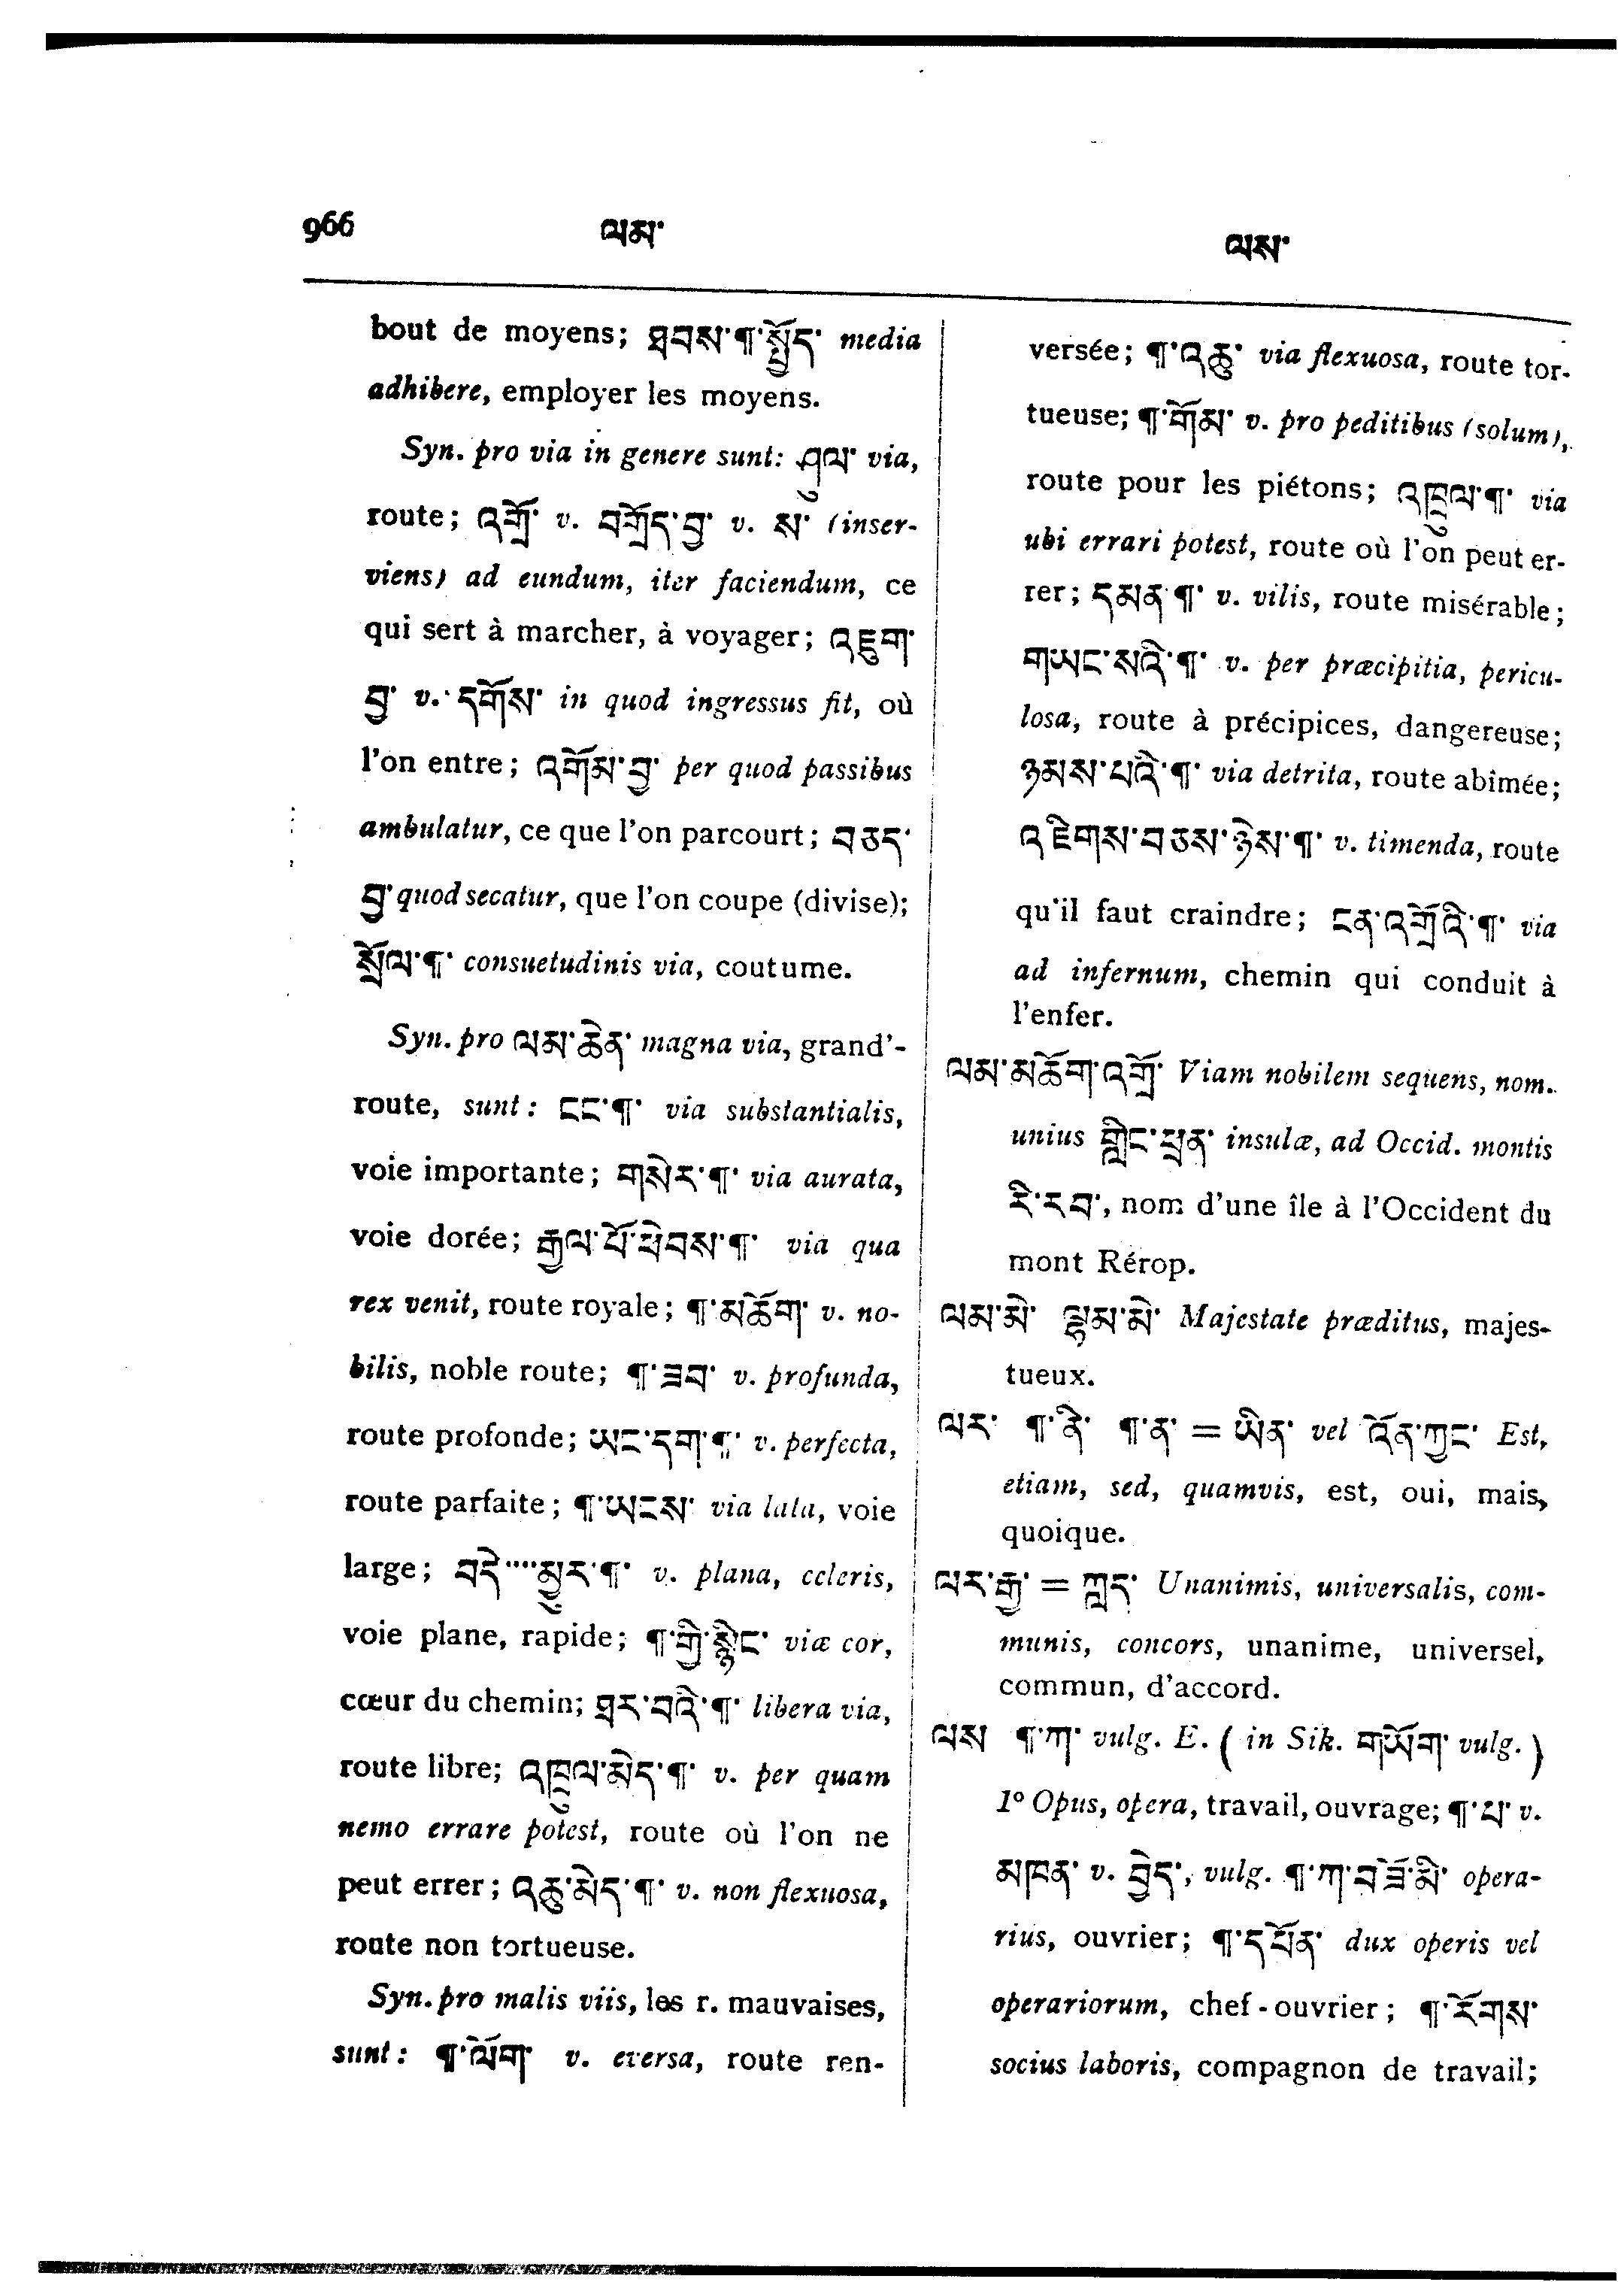 966 ལམ་ ལས་
bout de moyens; ཐབས་¶་སྤྱོད་ media
adhibere, employer les moyens.
Syn. pro via in genere sunt: ཤུལ་ via,
route; འགྲོ་ v. བགྲོད་བྱ་ v. ས་ (inser-
viens) ad eundum, iter faciendum, ce
qui sert à marcher, à voyager; འཇུག་
བྱ་ v. དགོས་ in quod ingressus fit, où
l'on entre; འགོམ་བྱ་ per quod passibus
ambulatur, ce que l'on parcourt; བཅད་
བྱ་ quod secatur, que l'on coupe (divise);
སྲོལ་¶་ consuetudinis via, coutume.
Syn. pro ལམ་ཆེན་ magna via, grand'-
route, sunt: ངང་¶་ via substantialis,
voie importante; གསེར་¶་ via aurata,
voie dorée; རྒྱལ་པོ་ཕེབས་¶་ via qua
rex venit, route royale; ¶་མཆོག་ v. no-
bilis, noble route; ¶་ཟབ་ v. profunda,
route profonde; ཡང་དག་¶་ v. perfecta,
route parfaite; ¶་ཡངས་ via lata, voie
large; བདེ་་་་་མྱུར་¶་ v. plana, celeris,
voie plane, rapide; ¶་གྱི་སྙིང་ viæ cor,
cœur du chemin; ཐར་བའི་¶་ libera via,
route libre; འཁྲུལ་མེད་¶་ v. per quam
nemo errare potest, route où l'on ne
peut errer; འཆུ་མེད་¶་ v. non flexuosa,
route non tortueuse.
Syn. pro malis viis, les r. mauvaises,
sunt: ¶་ལོག་ v. eversa, route ren-
versée; ¶་འཆུ་ via flexuosa, route tor-
tueuse; ¶་གོམ་ v. pro peditibus (solum),
route pour les piétons; འཁྲུལ་¶་ via
ubi errari potest, route où l'on peut er-
rer; དམན་¶་ v. vilis, route misérable;
གཡང་སའི་¶་ v. per præcipitia, pericu-
losa, route à précipices, dangereuse;
ཉམས་པའི་¶་ via detrita, route abîmée;
འཇིགས་བཅས་ཉེས་¶་ v. timenda, route
qu'il faut craindre; ངན་འགྲོའི་¶་ via
ad infernum, chemin qui conduit à
l'enfer.
ལམ་མཆོག་འགྲོ་ Viam nobilem sequens, nom.
unius གླིང་ཕྲན་ insulæ, ad Occid. montis
རི་རབ་, nom d'une île à l'Occident du
mont Rérop.
ལམ་མེ་ ལྷམ་མེ་ Majestate præditus, majes-
tueux.
ལར་ ¶་ནི་ ¶་ན་ = ཡིན་ vel འོན་ཀྱང་ Est,
etiam, sed, quamvis, est, oui, mais,
quoique.
ལར་རྒྱ་ = ཀླད་ Unanimis, universalis, com-
munis, concors, unanime, universel,
commun, d'accord.
ལས ¶་ཀ་ vulg. E. ( in Sik. གཡོག་ vulg. )
1º Opus, opera, travail, ouvrage; ¶་པ་ v.
མཁན་ v. བྱེད་, vulg. ¶་ཀ་བཟོ་མི་ opera-
rius, ouvrier; ¶་དཔོན་ dux operis vel
operariorum, chef-ouvrier; ¶་རོགས་
socius laboris, compagnon de travail;